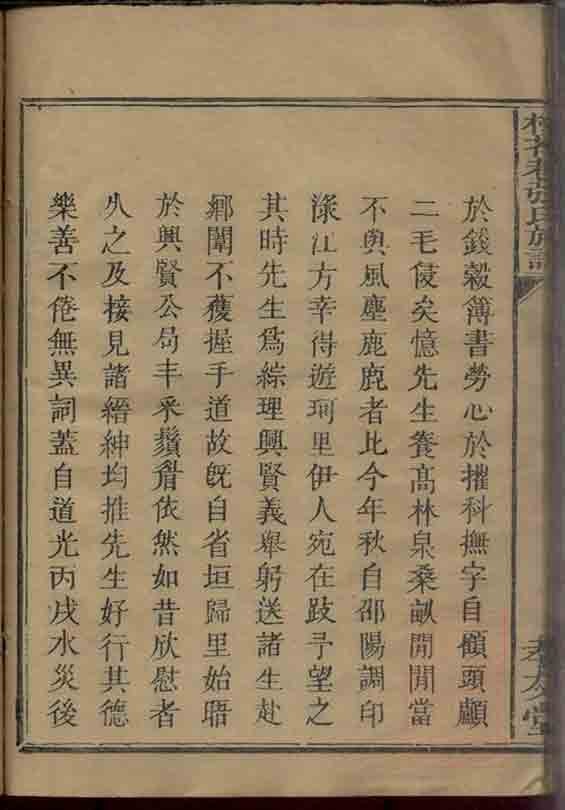 氏族譜
堂
於錢穀簿書勞心於擢科撫字自顧頭顱
二毛侵矣憶先生養髙林泉桑畝閒閒當
不與風塵鹿鹿者比今年秋自邵陽調印
淥江方幸得遊珂里伊人宛在跂予望之
其時先生爲綜理興賢義舉躬送諸生赴
鄉闈不獲握手道故旣自省垣歸里始晤
於興賢公局丰采鬚眉依然如昔欣慰者
久之及接見諸縉紳均推先生好行其德
樂善不倦無異詞蓋自道光丙戌水災後